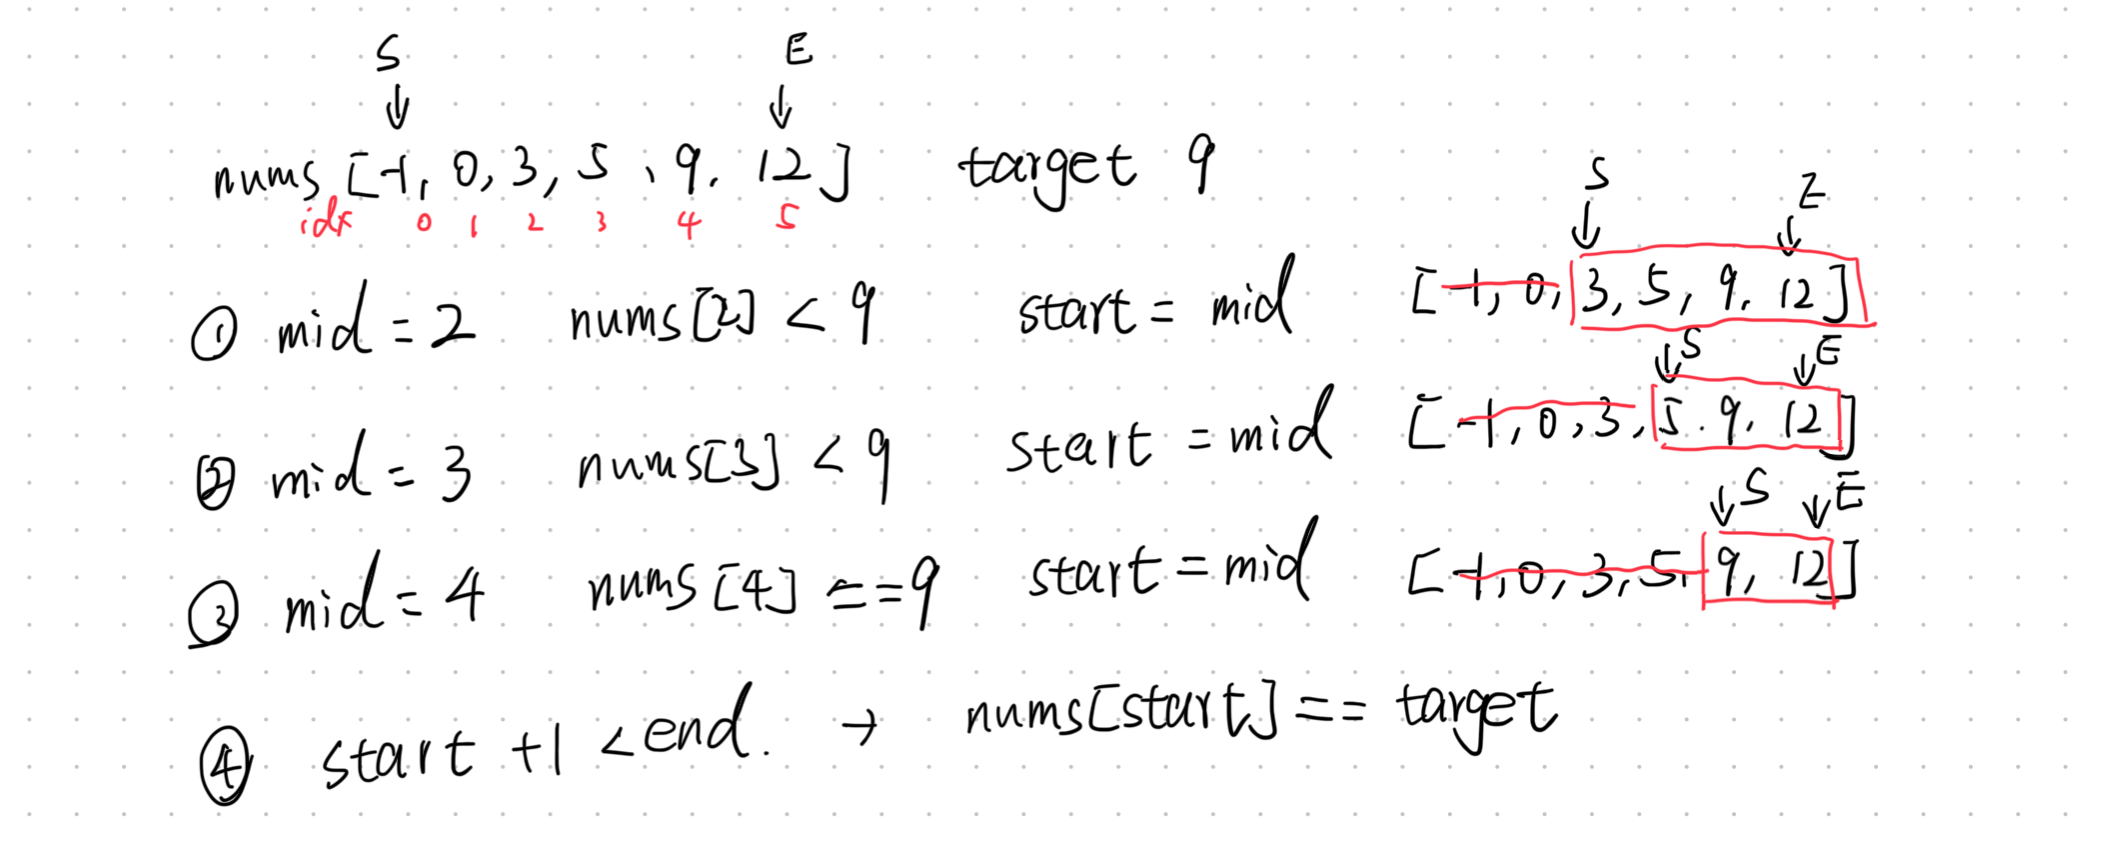 S E
nums [-1, 0, 3, 5, 9, 12] target 9
idx 0 1 2 3 4 5
S E
① mid = 2 nums[2] < 9 start = mid [-1, 0, 3, 5, 9, 12]
S E
② mid = 3 nums[3] < 9 start = mid [-1, 0, 3, 5, 9, 12]
S E
③ mid = 4 nums[4] == 9 start = mid [-1, 0, 3, 5, 9, 12]
④ start +1 < end. → nums[start] == target